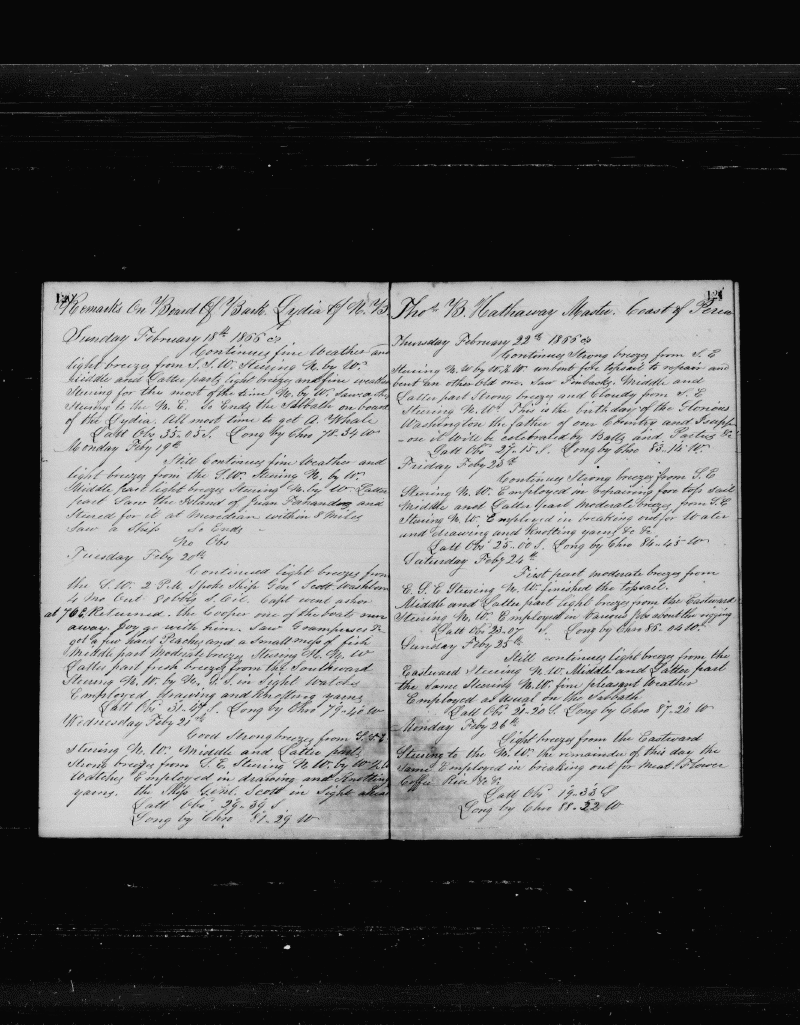 120
Remarks On Board Of Bark Lydia Of N. B.
Sunday February 18th 1855
Continues fine Weather and
light breezes from S.S.W. Steering N. by W.
Middle and Latter parts light breezes and fine weather
Steering for the most of the time N. by W. Saw a Ship
Steering to the N. E. So Ends the Sabbath on board
of the Lydia. All most time to get A. Whale
Latt Obs 35-05 S. Long by Chro 78-34 W
Monday Feby 19th
Still Continues fine Weather and
light breezes from the S.W. Steering N. by W.
Middle part light breezes Steering N. by W. Latter
part Saw the Island of Juan Farnandoz and
Steered for it at Meridian within 8 Miles
Saw a Ship So Ends
No Obs
Tuesday Feby 20th
Continued light breezes from
the S.W. 2 P.M. Spoke Ship Genl Scott Washborn
4 Mo. Out Capt went ashor
at 7 Returned. the Cooper one of the boats run
away. Joy go with him. Saw Grampuses &c
get a few hard Peaches and a Small mess of fish
Middle part Moderate breezes Steering N. N. W
Latter part fresh breezes from the Southward
Steering N.W. by N. G. S. in Sight Watches
Employed drawing and Knotting yarns
Latt Obs 31-47 S. Long by Chro 79-40 W
Wednesday Feby 21th
Good Strong breezes from
Steering N. W. Middle and Latter part
Strong breezes from S. E Steering N W. by W.
Watches Employed in drawing and Knotting
yarns. the Ship Genl. Scott in Sight
Latt Obs 29-39 S
Long by Chro 81-29 W
121
Thos B. Hathaway Master. Coast of Perew
Thursday February 22th 1855
Continues Strong breezes from S. E
Steering N. W by W. unbent fore topsail to repair and
bent an other old one. Saw Finbacks. Middle and
Latter part Strong breezes and Cloudy from S. E
Steering N. W. This is the birthday of the Glorious
Washington the father of our Country and I
it Will be celebrated by Balls and Parties &c
Latt Obs 27-15 S. Long by Chro 83-14 W.
Friday Feby 23th
Continues Strong breezes from S. E
Steering N. W. Employed in repairing fore top Sail
Middle and Latter part Moderate breezes from S. E
Steering N. W. Employed in breaking out for Water
and drawing and Knotting yarns &c &c
Latt Obs 25-00 S. Long by Chro 84-45 W
Saturday Feby 24th
First part moderate breezes from
E. S. E Steering N. W. finished the topsail.
Middle and Latter part light breezes from the Eastward
Steering N. W. Employed in Various Jobs about the rigging
Latt Obs 23-07 S. Long by Chro 86-04 W.
Sunday Feby 25th
Still continues light breezes from the
Eastward Steering N W. Middle and Latter part
the Same Steering N. W. fine pleasant Weather
Employed as Usual on the Sabbath
Latt Obs 21-20 S. Long by Chro 87-20 W
Monday Feby 26th
Light breezes from the Eastward
Steering to the N. W. the remainder of this day the
Same Employed in breaking out for Meat, Flower
Coffee Rice &c &c
Latt Obs 19-33 S
Long by Chro 88-52 W